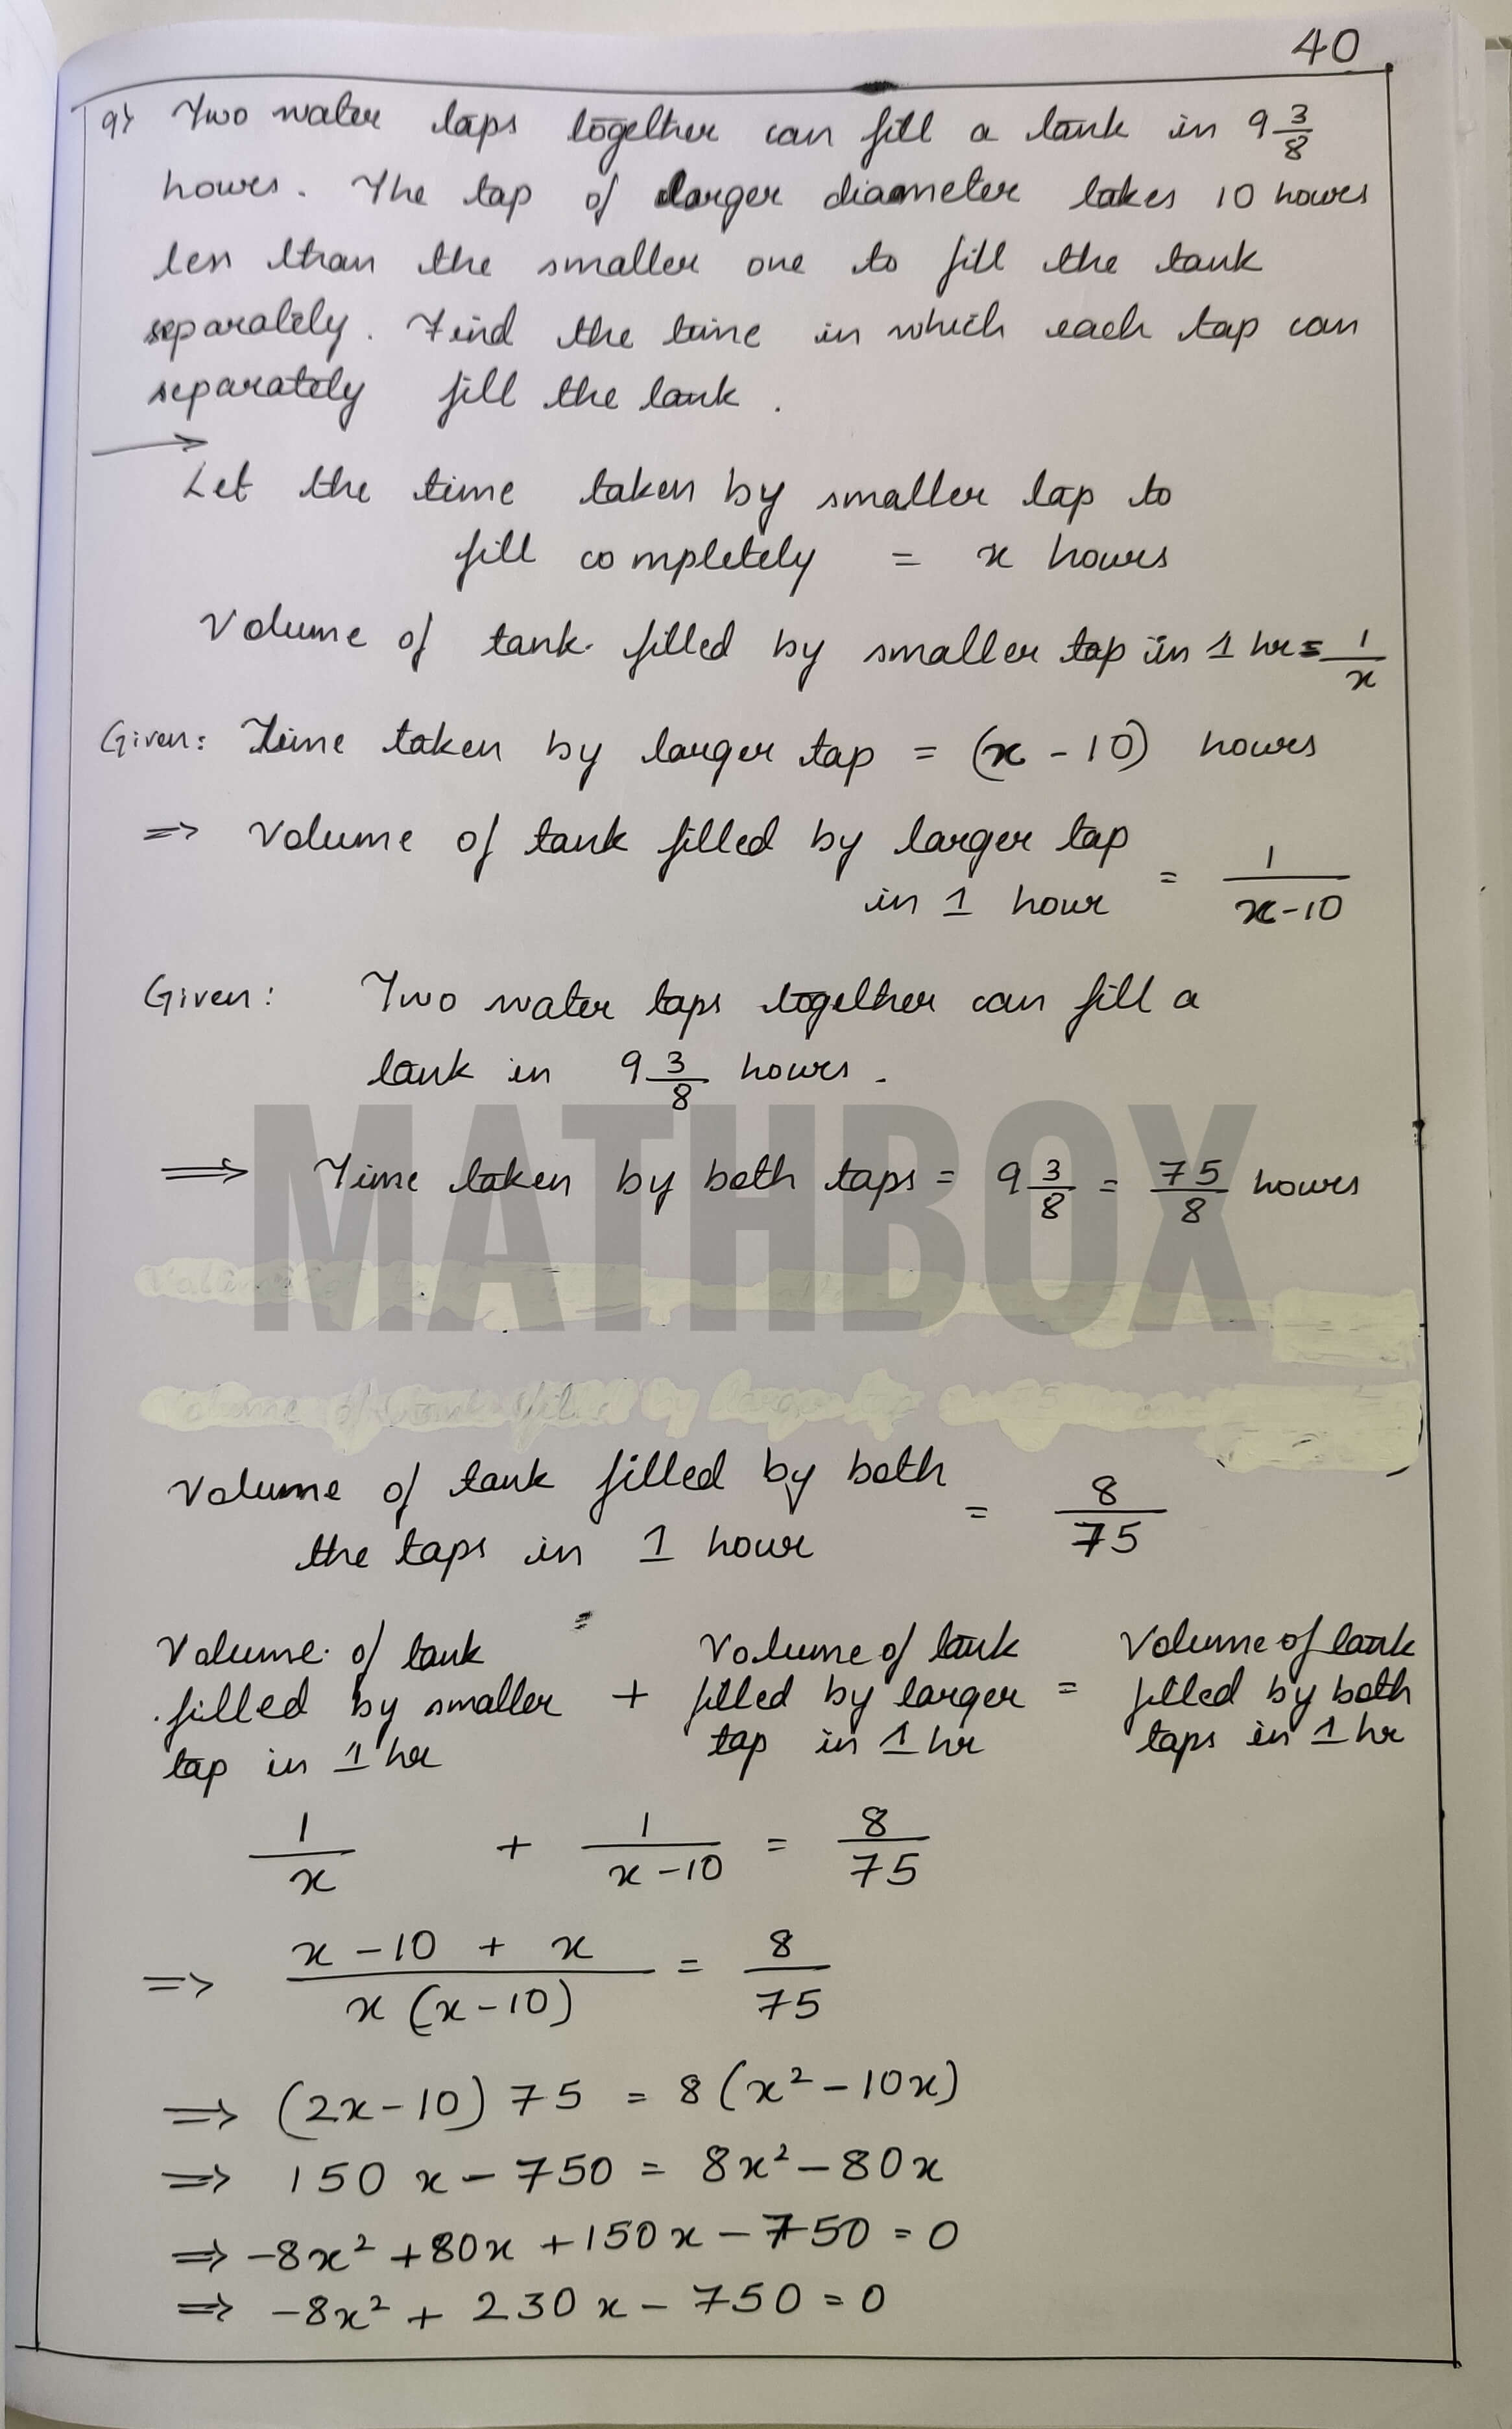 40
9) Two water taps together can fill a tank in 9 3/8
hours. The tap of larger diameter takes 10 hours
less than the smaller one to fill the tank
separately. Find the time in which each tap can
separately fill the tank.
→
Let the time taken by smaller tap to
fill completely = x hours
Volume of tank filled by smaller tap in 1 hr = 1/x
Given: Time taken by larger tap = (x - 10) hours
=> Volume of tank filled by larger tap
in 1 hour = 1/(x-10)
Given: Two water taps together can fill a
tank in 9 3/8 hours.
=> Time taken by both taps = 9 3/8 = 75/8 hours
MATHBOX
Volume of tank filled by larger tap
Volume of tank filled by both
the taps in 1 hour = 8/75
Volume of tank filled by smaller tap in 1 hr + Volume of tank filled by larger tap in 1 hr = Volume of tank filled by both taps in 1 hr
1/x + 1/(x-10) = 8/75
=> (x - 10 + x)/(x(x-10)) = 8/75
=> (2x-10) 75 = 8(x² - 10x)
=> 150x - 750 = 8x² - 80x
=> -8x² + 80x + 150x - 750 = 0
=> -8x² + 230x - 750 = 0